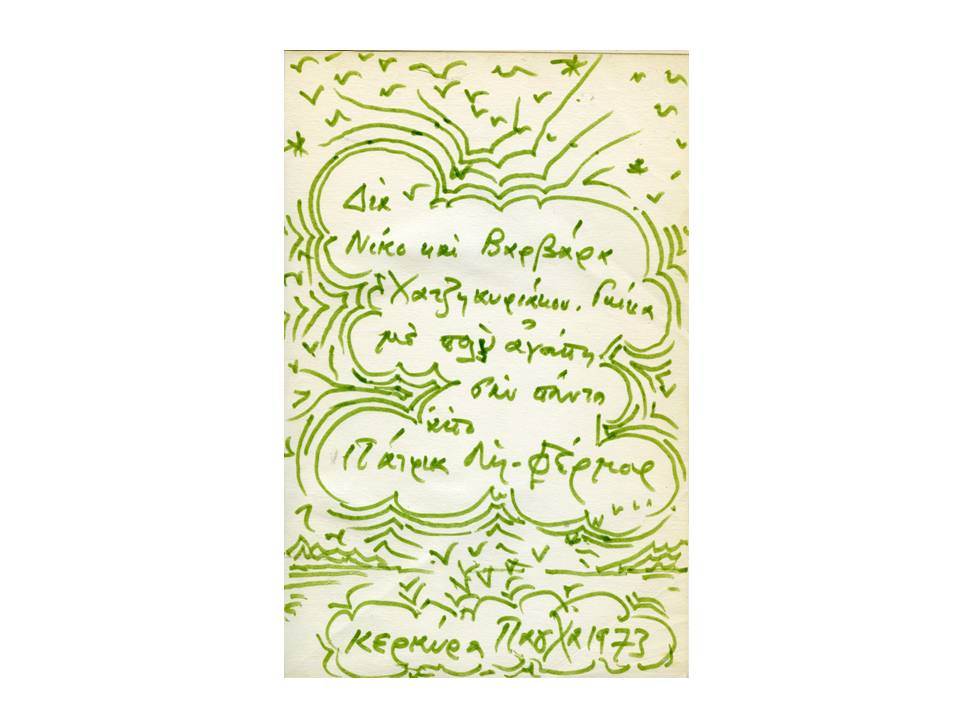 Διὰ
Νίκο καὶ Βαρβάρα
Χατζηκυριάκου. Γκίκα
μὲ πολὺ ἀγάπη
σὰν πάντα
ἀπὸ
Πάτρικ Λὴ-Φέρμορ
ΚΕΡΚΥΡΑ ΠΑΣΧΑ 1973